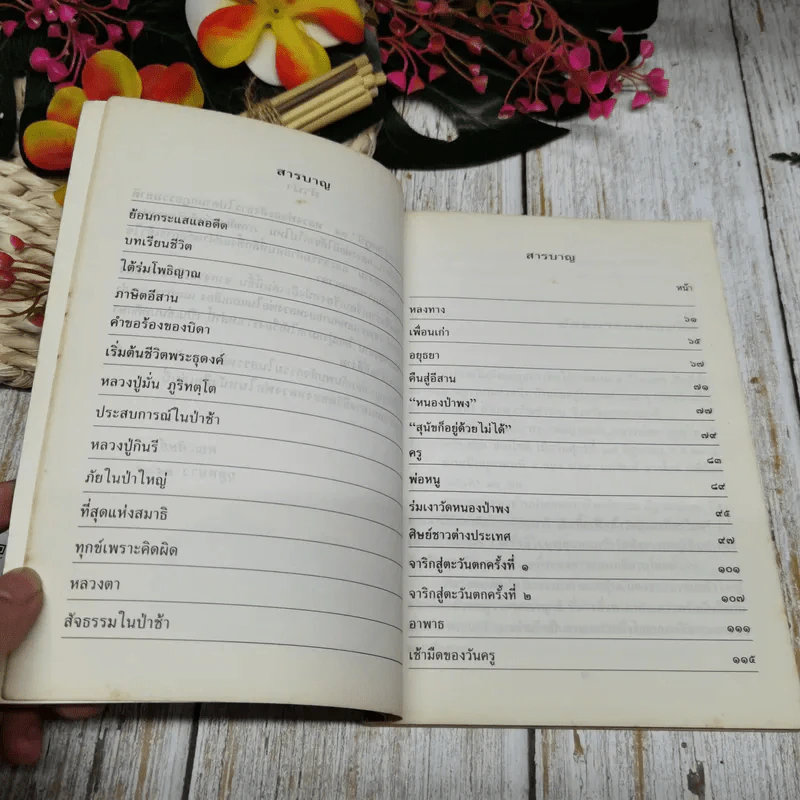 สารบาญ
ย้อนกระแสแลอดีต
บทเรียนชีวิต
ใต้ร่มโพธิญาณ
ภาษิตอีสาน
คำขอร้องของบิดา
เริ่มต้นชีวิตพระธุดงค์
หลวงปู่มั่น ภูริทตฺโต
ประสบการณ์ในป่าช้า
หลวงปู่กินรี
ภัยในป่าใหญ่
ที่สุดแห่งสมาธิ
ทุกข์เพราะคิดผิด
หลวงตา
สัจธรรมในป่าช้า
สารบาญ
หน้า
หลงทาง ๖๑
เพื่อนเก่า ๖๕
อยุธยา ๖๗
คืนสู่อีสาน ๗๑
“หนองป่าพง” ๗๗
“สุนัขก็อยู่ด้วยไม่ได้” ๗๙
ครู ๘๓
พ่อหนู ๘๙
ร่มเงาวัดหนองป่าพง ๙๕
ศิษย์ชาวต่างประเทศ ๙๗
จาริกสู่ตะวันตกครั้งที่ ๑ ๑๐๑
จาริกสู่ตะวันตกครั้งที่ ๒ ๑๐๗
อาพาธ ๑๑๑
เช้ามืดของวันครู ๑๑๕